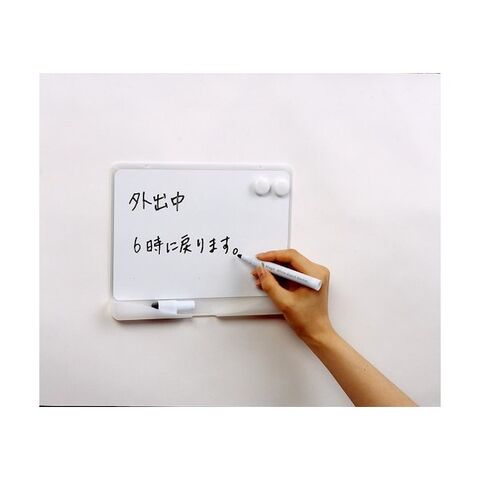 外出中
6時に戻ります。